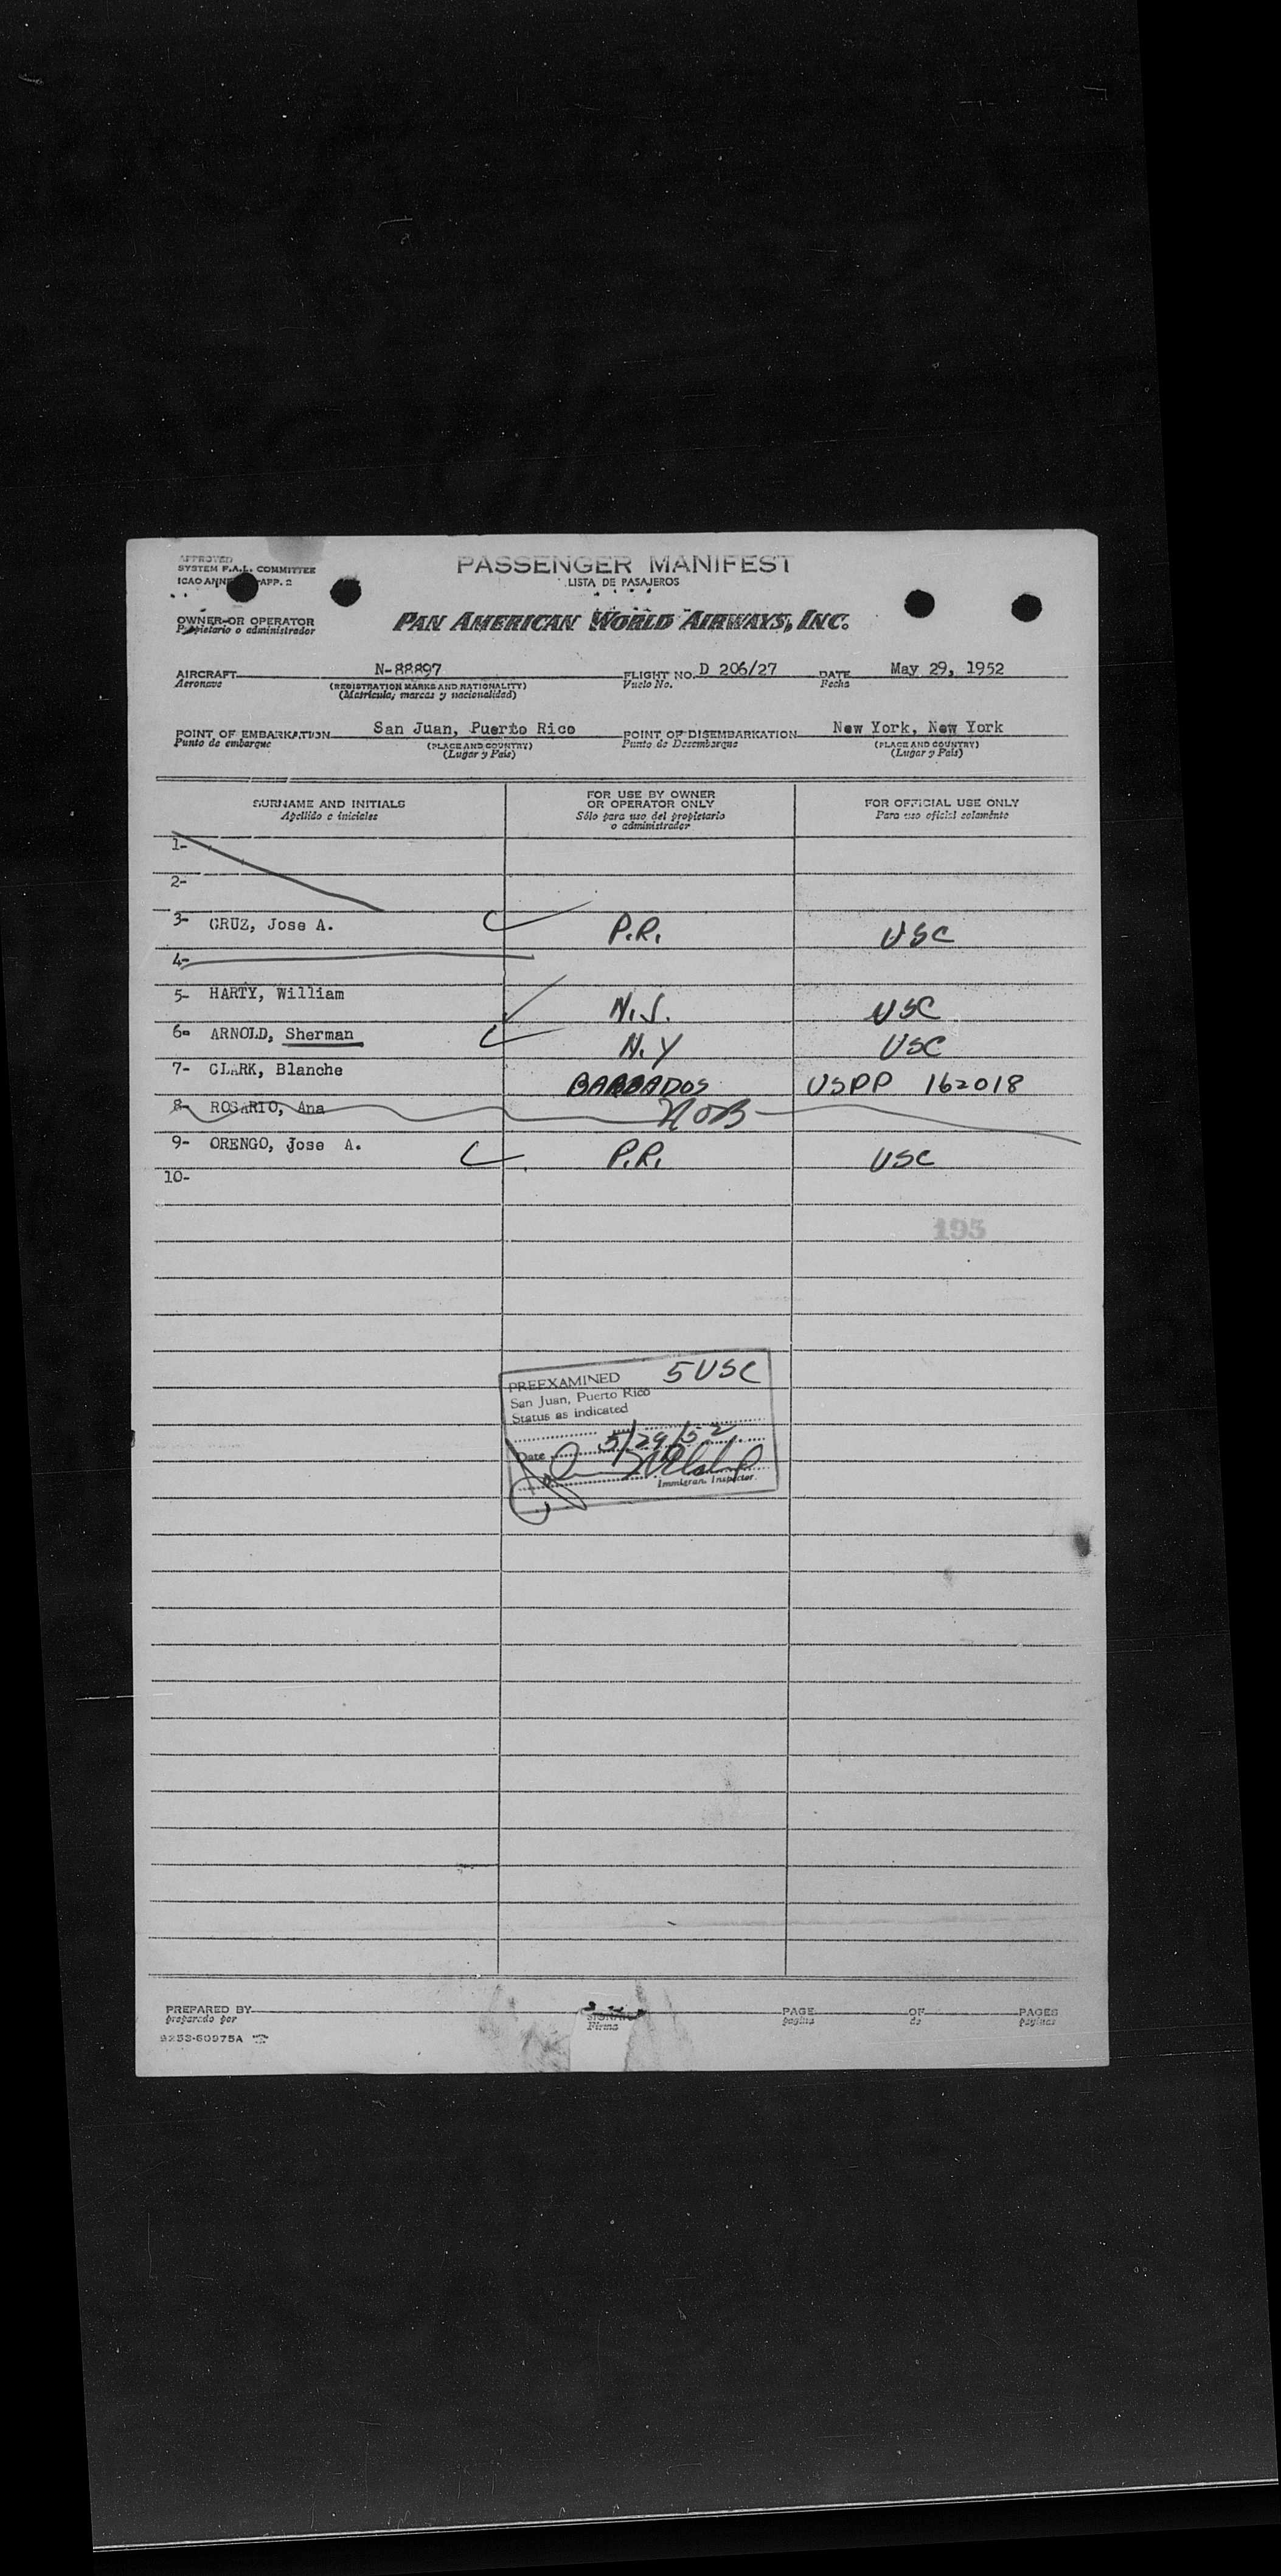 APPROVED
SYSTEM F.A.L. COMMITTEE
ICAO ANNE APP. 2
PASSENGER MANIFEST
LISTA DE PASAJEROS
OWNER OR OPERATOR
Propietario o administrador
PAN AMERICAN WORLD AIRWAYS, INC.
AIRCRAFT N-88897 FLIGHT NO. D 206/27 DATE May 29, 1952
Aeronave (REGISTRATION MARKS AND NATIONALITY) Vuelo No. Fecha
(Matrícula, marcas y nacionalidad)
POINT OF EMBARKATION San Juan, Puerto Rico POINT OF DISEMBARKATION New York, New York
Punto de embarque (PLACE AND COUNTRY) Punto de Desembarque (PLACE AND COUNTRY)
(Lugar y País) (Lugar y País)
SURNAME AND INITIALS
Apellido e iniciales
FOR USE BY OWNER
OR OPERATOR ONLY
Sólo para uso del propietario
o administrador
FOR OFFICIAL USE ONLY
Para uso oficial solamente
1-
2-
3- CRUZ, Jose A. P.R. USC
4-
5- HARTY, William N.J. USC
6- ARNOLD, Sherman N.Y USC
7- CLARK, Blanche BARBADOS USPP 162018
8- ROSARIO, Ana NOB
9- ORENGO, Jose A. P.R. USC
10-
195
5 USC
PREEXAMINED
San Juan, Puerto Rico
Status as indicated
Date 5/29/52
Immigran. Inspector.
PREPARED BY PAGE OF PAGES
preparado por Firma pagina de paginas
9253-60975A